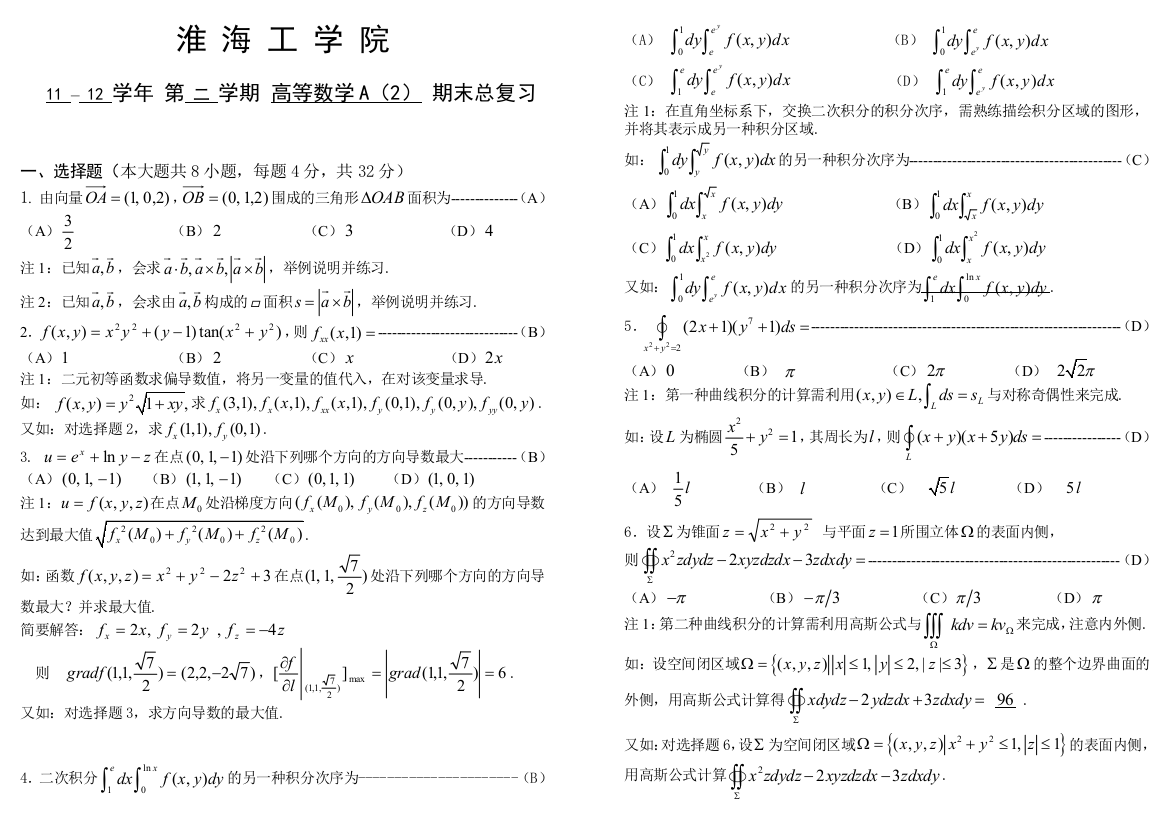 淮 海 工 学 院
11 – 12 学年 第 二 学期 高等数学 A（2） 期末总复习
一、选择题（本大题共 8 小题，每题 4 分，共 32 分）
1. 由向量 $\overrightarrow{OA}=(1,0,2)$，$\overrightarrow{OB}=(0,1,2)$ 围成的三角形 $\Delta OAB$ 面积为--------------（A）
（A）$\frac{3}{2}$ （B）2 （C）3 （D）4
注 1：已知 $\vec{a},\vec{b}$ ，会求 $\vec{a}\cdot\vec{b},\vec{a}\times\vec{b},|\vec{a}\times\vec{b}|$ ，举例说明并练习.
注 2：已知 $\vec{a},\vec{b}$ ，会求由 $\vec{a},\vec{b}$ 构成的 ▱ 面积 $s=|\vec{a}\times\vec{b}|$ ，举例说明并练习.
2. $f(x,y)=x^2y^2+(y-1)\tan(x^2+y^2)$，则 $f_{xx}(x,1)=$-----------------------------（B）
（A）1 （B）2 （C）$x$ （D）$2x$
注 1：二元初等函数求偏导数值，将另一变量的值代入，在对该变量求导.
如： $f(x,y)=y^2\sqrt{1+xy}$, 求 $f_x(3,1),f_x(x,1),f_{xx}(x,1),f_y(0,1),f_y(0,y),f_{yy}(0,y)$ .
又如：对选择题 2，求 $f_x(1,1),f_y(0,1)$ .
3. $u=e^x+\ln y-z$ 在点 $(0,1,-1)$ 处沿下列哪个方向的方向导数最大-----------（B）
（A）$(0,1,-1)$ （B）$(1,1,-1)$ （C）$(0,1,1)$ （D）$(1,0,1)$
注 1：$u=f(x,y,z)$ 在点 $M_0$ 处沿梯度方向 $(f_x(M_0),f_y(M_0),f_z(M_0))$ 的方向导数
达到最大值 $\sqrt{f_x^2(M_0)+f_y^2(M_0)+f_z^2(M_0)}$ .
如：函数 $f(x,y,z)=x^2+y^2-2z^2+3$ 在点 $(1,1,\frac{\sqrt{7}}{2})$ 处沿下列哪个方向的方向导
数最大？并求最大值.
简要解答： $f_x=2x,f_y=2y,f_z=-4z$
则 $gradf(1,1,\frac{\sqrt{7}}{2})=(2,2,-2\sqrt{7})$，$[\frac{\partial f}{\partial l}|_{(1,1,\frac{\sqrt{7}}{2})}]_{\max}=|grad(1,1,\frac{\sqrt{7}}{2})|=6$ .
又如：对选择题 3，求方向导数的最大值.
4. 二次积分 $\int_1^e dx\int_0^{\ln x}f(x,y)dy$ 的另一种积分次序为----------------------（B）
（A） $\int_0^1 dy\int_e^{e^y}f(x,y)dx$ （B） $\int_0^1 dy\int_{e^y}^e f(x,y)dx$
（C） $\int_1^e dy\int_e^{e^y}f(x,y)dx$ （D） $\int_1^e dy\int_{e^y}^e f(x,y)dx$
注 1：在直角坐标系下，交换二次积分的积分次序，需熟练描绘积分区域的图形，
并将其表示成另一种积分区域.
如： $\int_0^1 dy\int_y^{\sqrt{y}}f(x,y)dx$ 的另一种积分次序为--------------------------------------------（C）
（A）$\int_0^1 dx\int_x^{\sqrt{x}}f(x,y)dy$ （B）$\int_0^1 dx\int_{\sqrt{x}}^x f(x,y)dy$
（C）$\int_0^1 dx\int_{x^2}^x f(x,y)dy$ （D）$\int_0^1 dx\int_x^{x^2}f(x,y)dy$
又如：$\int_0^1 dy\int_{e^y}^e f(x,y)dx$ 的另一种积分次序为 $\int_1^e dx\int_0^{\ln x}f(x,y)dy$ .
5. $\oint_{x^2+y^2=2}(2x+1)(y^7+1)ds=$----------------------------------------------------------------（D）
（A）0 （B） $\pi$ （C）$2\pi$ （D） $2\sqrt{2}\pi$
注 1：第一种曲线积分的计算需利用 $(x,y)\in L,\int_L ds=s_L$ 与对称奇偶性来完成.
如：设 $L$ 为椭圆 $\frac{x^2}{5}+y^2=1$，其周长为 $l$，则 $\oint_L(x+y)(x+5y)ds=$----------------（D）
（A） $\frac{1}{5}l$ （B） $l$ （C） $\sqrt{5}l$ （D） $5l$
6. 设 $\Sigma$ 为锥面 $z=\sqrt{x^2+y^2}$ 与平面 $z=1$ 所围立体 $\Omega$ 的表面内侧，
则 $\oiint_\Sigma x^2zdydz-2xyzdzdx-3zdxdy=$----------------------------------------------------（D）
（A）$-\pi$ （B）$-\pi/3$ （C）$\pi/3$ （D）$\pi$
注 1：第二种曲线积分的计算需利用高斯公式与 $\iiint_\Omega kdv=kv_\Omega$ 来完成，注意内外侧.
如：设空间闭区域 $\Omega=\{(x,y,z)||x|\le1,|y|\le2,|z|\le3\}$ ，$\Sigma$ 是 $\Omega$ 的整个边界曲面的
外侧，用高斯公式计算得 $\oiint_\Sigma xdydz-2ydzdx+3zdxdy=$ 96 .
又如：对选择题 6，设 $\Sigma$ 为空间闭区域 $\Omega=\{(x,y,z)|x^2+y^2\le1,|z|\le1\}$ 的表面内侧，
用高斯公式计算 $\oiint_\Sigma x^2zdydz-2xyzdzdx-3zdxdy$ .